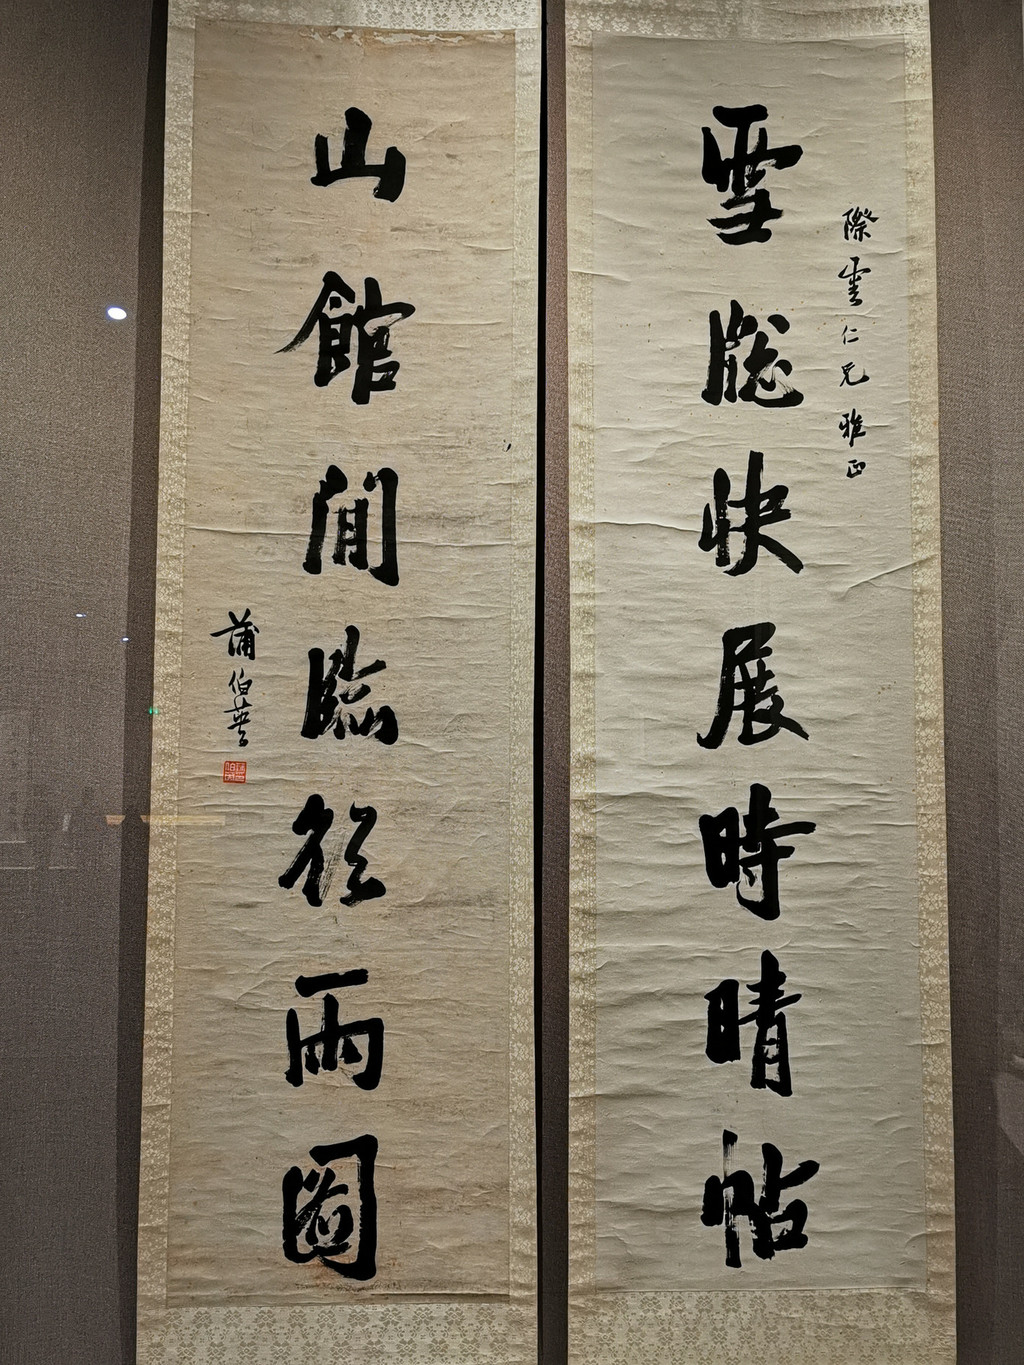 際雲仁兄雅正
雪牕快展時晴帖
山館閒臨欲雨圖
蒲伯英